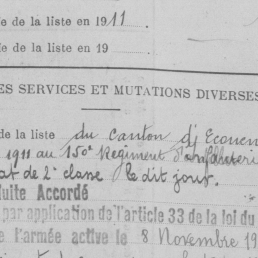 e de la liste en 1911
e de la liste en 19
ES SERVICES ET MUTATIONS DIVERSES
de la liste du canton d'Ecouen
1911 au 150e Régiment d'infanterie
at de 2e classe le dit jour.
uite Accordé
par application de l'article 33 de la loi du
e l'armée active le 8 Novembre 19